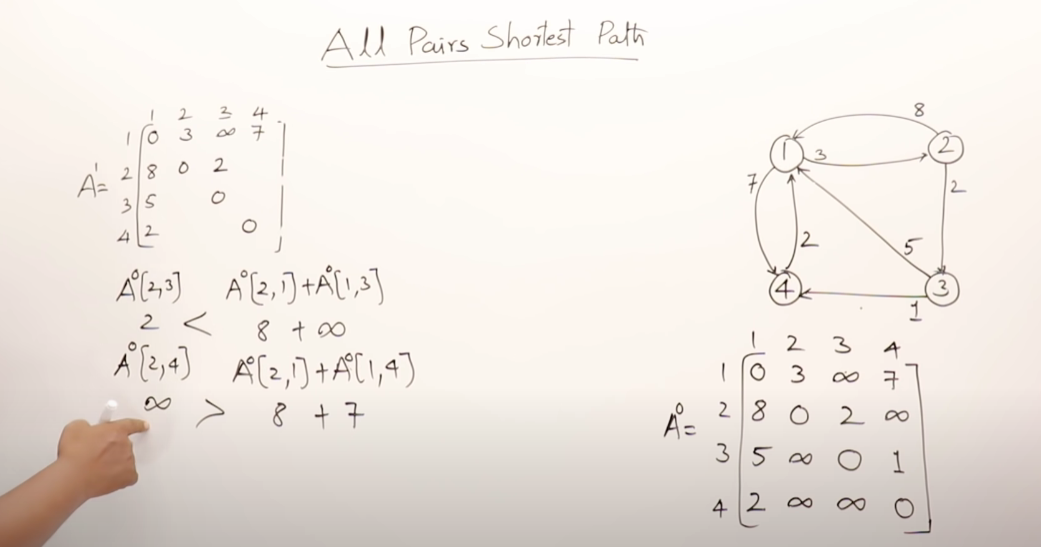 All Pairs Shortest Path
1 2 3 4
1 0 3 ∞ 7
A¹= 2 8 0 2
3 5 0
4 2 0
A⁰[2,3] A⁰[2,1]+A⁰[1,3]
2 < 8 + ∞
A⁰[2,4] A⁰[2,1]+A⁰[1,4]
∞ > 8 + 7
8
1 3 2
7 2
2 5
4 3
1
1 2 3 4
1 0 3 ∞ 7
A⁰= 2 8 0 2 ∞
3 5 ∞ 0 1
4 2 ∞ ∞ 0